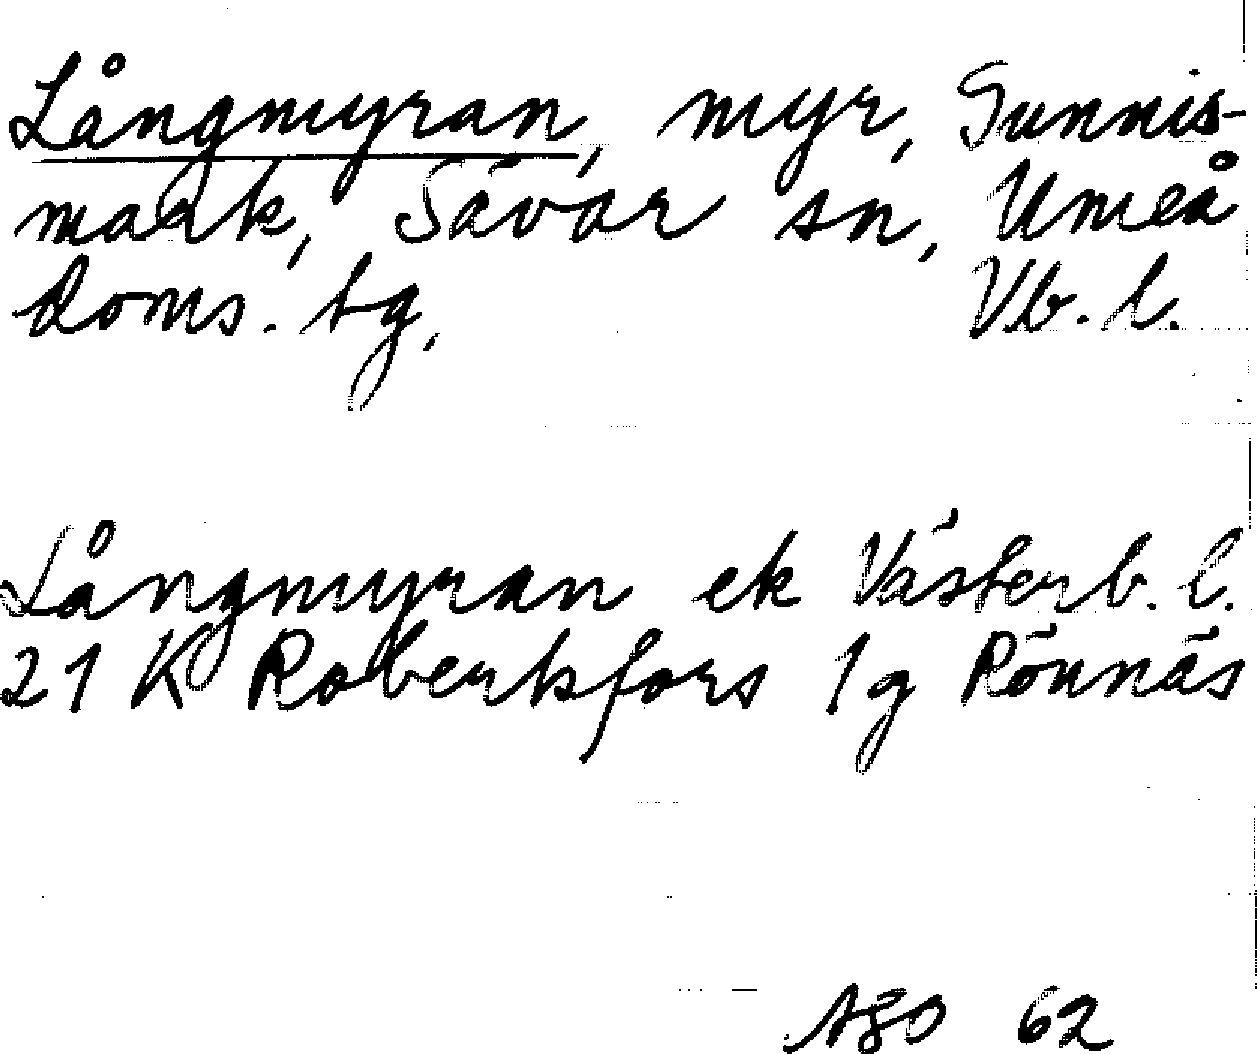 Långmyran, myr, Gunnis-
mark, Sävar sn, Umeå
Doms. tg, Vb. l.
Långmyran ek Västerb. l.
21 K Robertsfors 1g Rönnäs
ABO 62